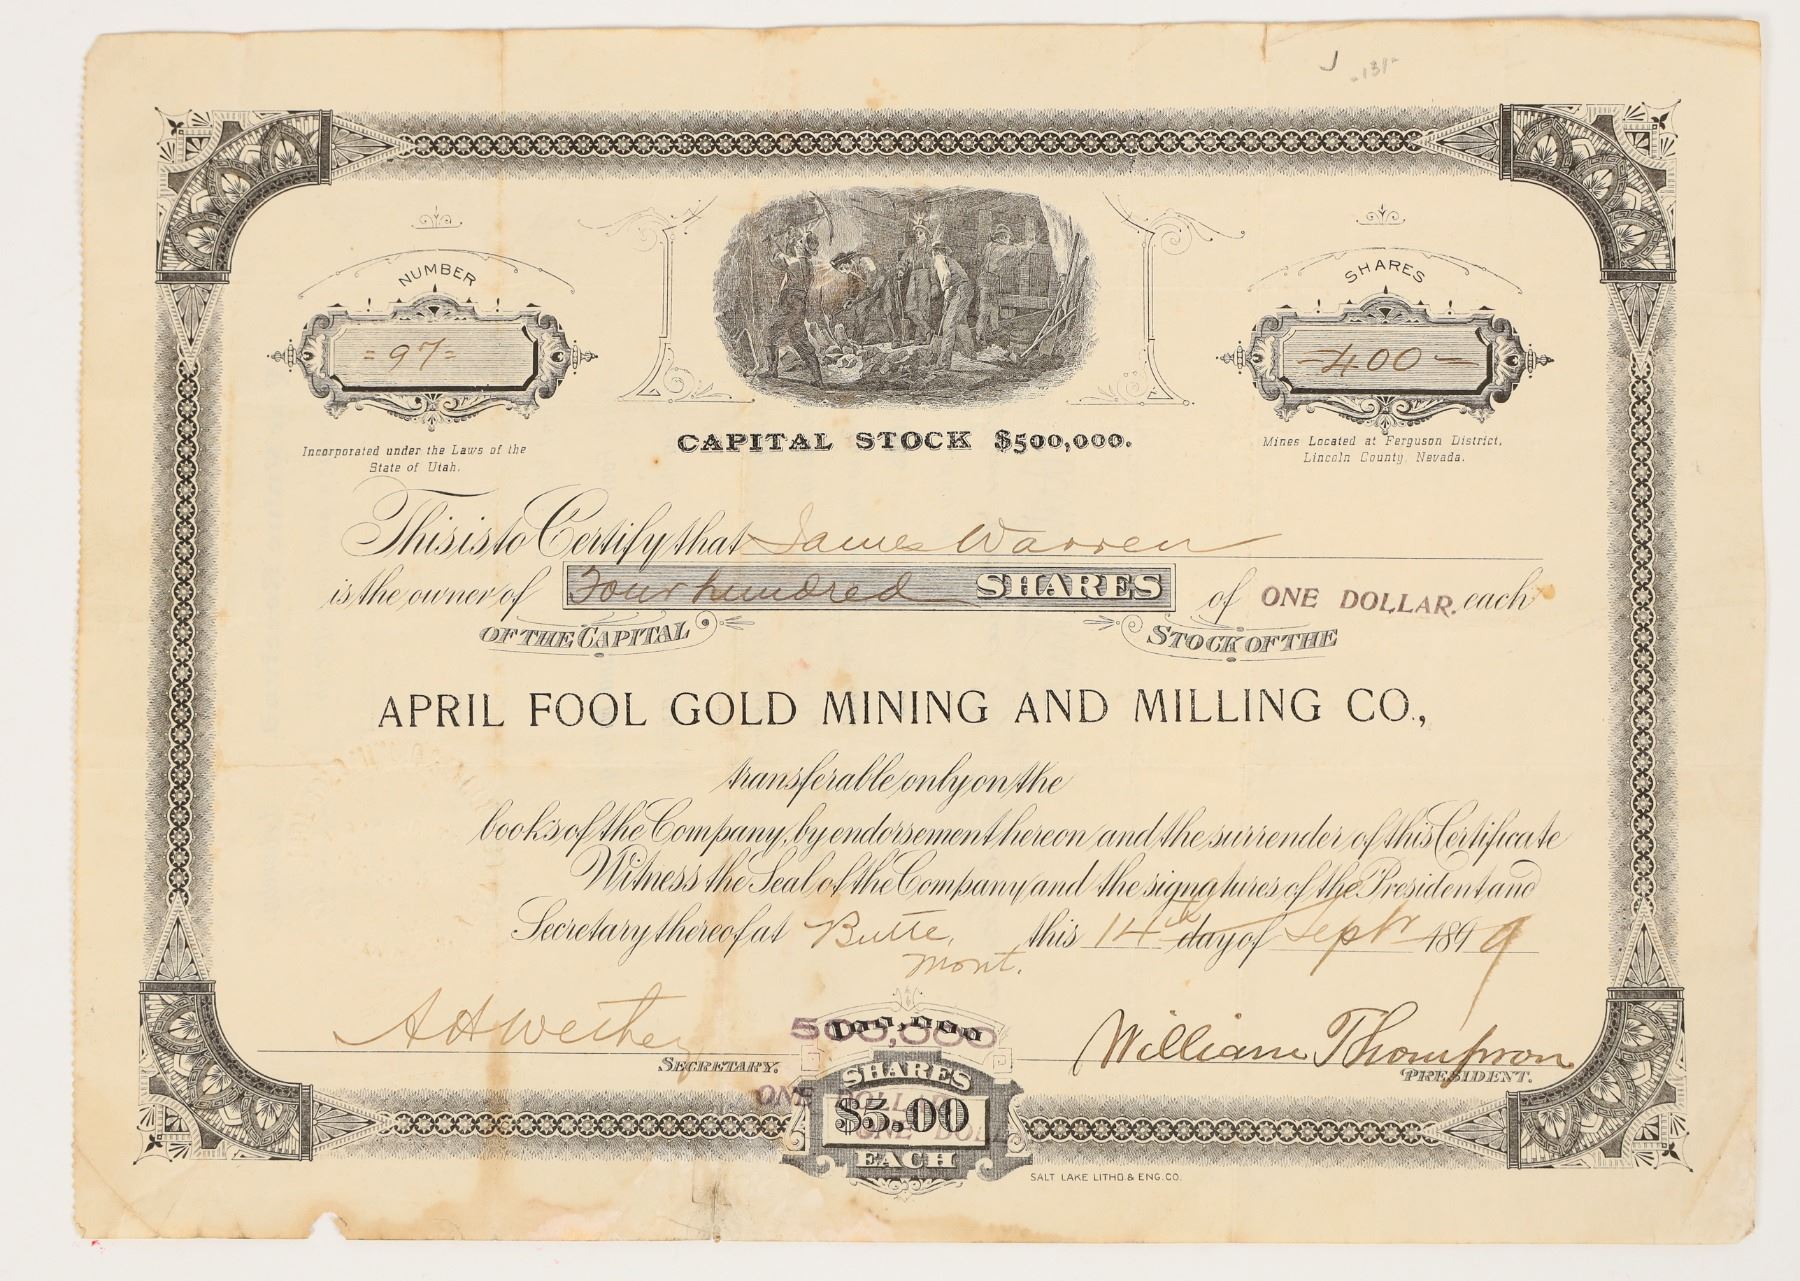 J 131
NUMBER
= 97 =
SHARES
= 400 =
Incorporated under the Laws of the
State of Utah.
CAPITAL STOCK $500,000.
Mines Located at Ferguson District,
Lincoln County, Nevada.
This is to Certify that James Warren
is the owner of Four hundred SHARES of ONE DOLLAR. each
OF THE CAPITAL STOCK OF THE
APRIL FOOL GOLD MINING AND MILLING CO.,
transferable only on the
books of the Company, by endorsement hereon and the surrender of this Certificate
Witness the Seal of the Company and the signatures of the President and
Secretary thereof at Butte, this 14th day of Sept 1899
Mont.
William Thompson
SECRETARY.
PRESIDENT.
500,000
100,000
SHARES
ONE DOLLAR
$5.00
ONE DOLL
EACH
SALT LAKE LITHO & ENG. CO.